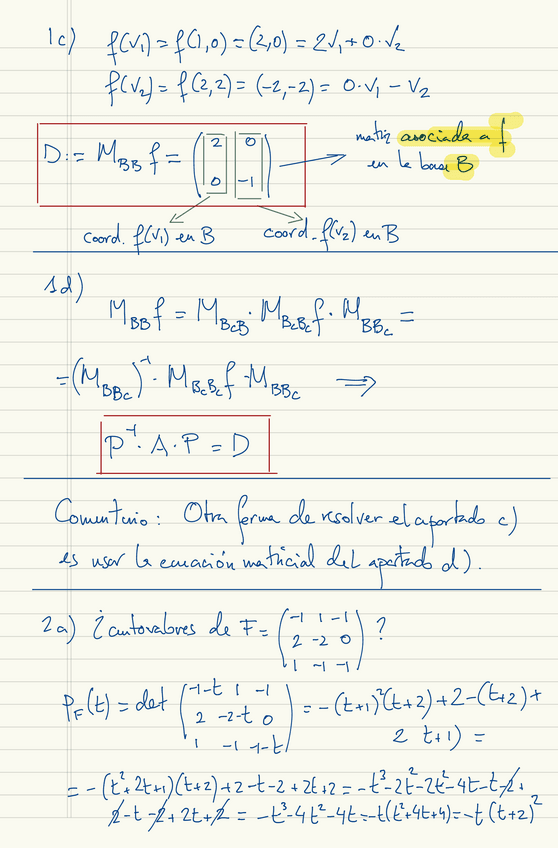 1c) f(v₁) = f(1,0) = (2,0) = 2v₁ + 0·v₂
f(v₂) = f(2,2) = (-2,-2) = 0·v₁ - v₂
D := M_BB f = (2 0 / 0 -1) → matriz asociada a f
en la base B
coord. f(v₁) en B coord. f(v₂) en B
1d)
M_BB f = M_BcB · M_BcBc f · M_BBc =
= (M_BBc)⁻¹ · M_BcBc f · M_BBc ⟹
P⁻¹ · A · P = D
Comentario: Otra forma de resolver el apartado c)
es usar la ecuación matricial del apartado d).
2a) ¿autovalores de F = (-1 1 -1 / 2 -2 0 / 1 -1 -1) ?
P_F(t) = det (-1-t 1 -1 / 2 -2-t 0 / 1 -1 -1-t) = -(t+1)²(t+2) + 2 - (t+2) +
2 t+1) =
= -(t²+2t+1)(t+2) + 2 - t - 2 + 2t + 2 = -t³ - 2t² - 2t² - 4t - t - 2 +
2 - t - 2 + 2t + 2 = -t³ - 4t² - 4t = -t(t²+4t+4) = -t(t+2)²